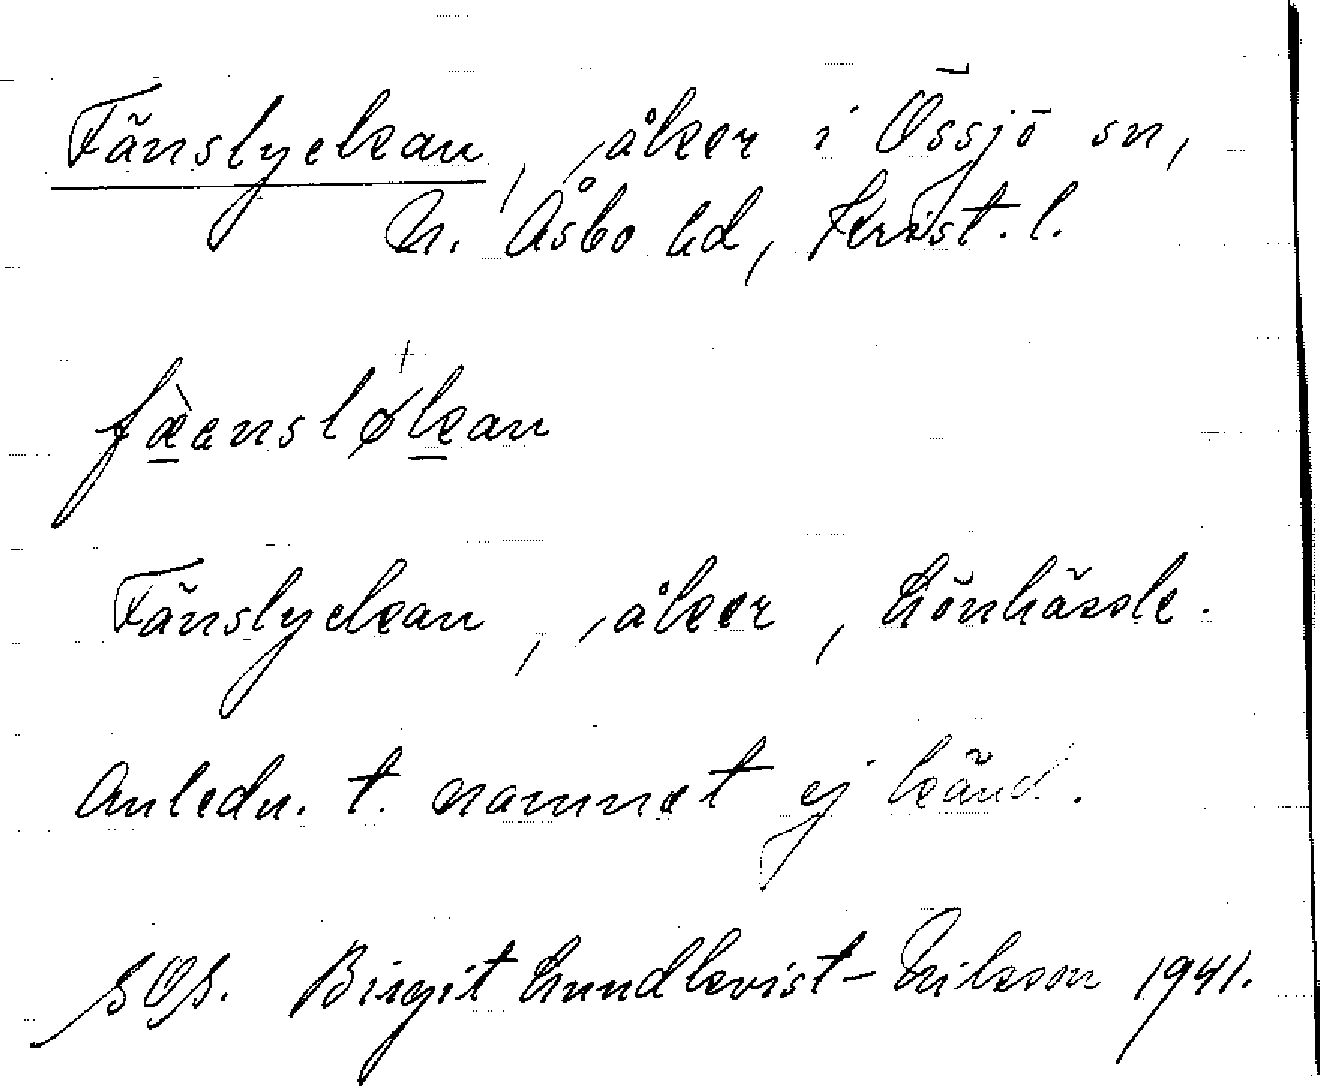 Fänslyckan, åker i Össjö sn,
N. Åsbo hd, Krist. l.
fæ̀ansløkan
Fänslyckan, åker, Lönhässle.
Anledn. t. namnet ej känd.
SOS. Birgit Lundkvist-Nilsson 1941.